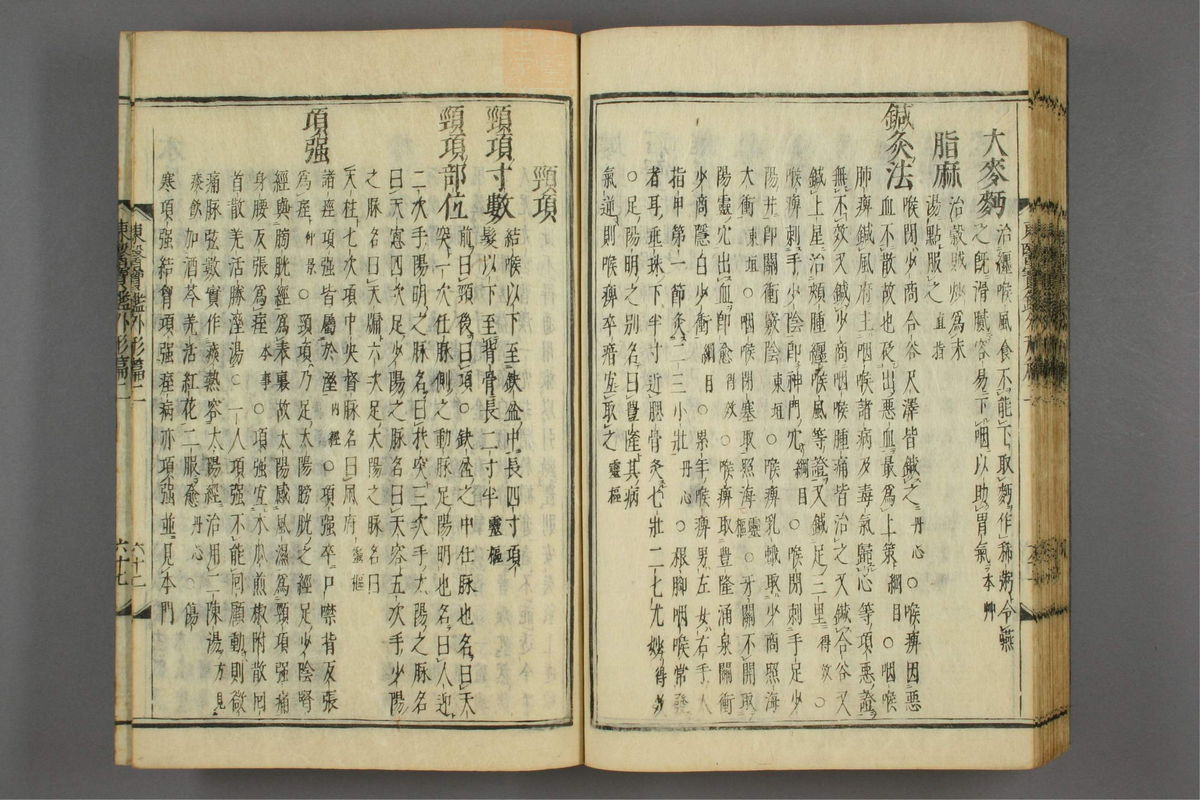 大麥麪 治纏喉風食不能下取麪作稀粥令嚥
之旣滑膩容易下咽以助胃氣 本艸
脂麻 治穀賊炒爲末
湯點服之 直指
鍼灸法 喉閉少商合谷尺澤皆鍼之 丹心 ○喉痺因惡
血不散故也砭出惡血最爲上策 綱目 ○咽喉
肺痺鍼風府主咽喉諸病及毒氣歸心等項惡證
無不效鍼少商咽喉腫痛皆治之又鍼合谷又
鍼上星治頰腫纏喉風等證又鍼足三里 得效 ○
喉痺刺手少陰卽神門穴 綱目 ○喉閉刺手足少
陽井卽關衝竅陰 東垣 ○喉痺乳蛾取少商照海
太衝 東垣 ○咽喉閉塞取照海 靈樞 ○牙關不開取
陽靈穴出血卽愈 得效 ○喉痺取豐隆涌泉關衝
少商隱白少衝 綱目 ○累年喉痺男左女右手大
指甲第一節灸二三小壯 丹心 ○根脚咽喉常發
者耳垂珠下半寸近腮骨灸七壯二七尤妙 得效
○足陽明之別名曰豐隆其病
氣逆則喉痺卒瘖左取之 靈樞
頸項
頸項寸數 結喉以下至缺盆中長四寸項
髮以下至背骨長二寸半 靈樞
頸項部位 前曰頸後曰項○缺盆之中任脉也名曰天
突一次任脉側之動脉足陽明也名曰人迎
二次手陽明之脉名曰扶突三次手太陽之脉名
曰天窓四次足少陽之脉名曰天容五次手少陽
之脉名曰天牖六次足太陽之脉名曰
天柱七次項中央督脉名曰風府 靈樞
項强 諸痙項强皆屬於溼 內經 ○項强卒口噤背反張
爲痙 仲景 ○頸項乃足太陽膀胱之經足少陰腎
經與膀胱經爲表裏故太陽感風濕爲頸項强痛
身腰反張爲痓 本事 ○項强宜木瓜煎椒附散回
首散羌活勝溼湯○一人項强不能回顧動則微
痛脉弦數實作痰熱客太陽經治用二陳湯 方見
痰飮 加酒芩羌活紅花二服愈 丹心 ○傷
寒項强結胷項强痓病亦項强並見本門
東醫寶鑑外形篇二
六十七
東醫寶鑑外形篇二
六十二